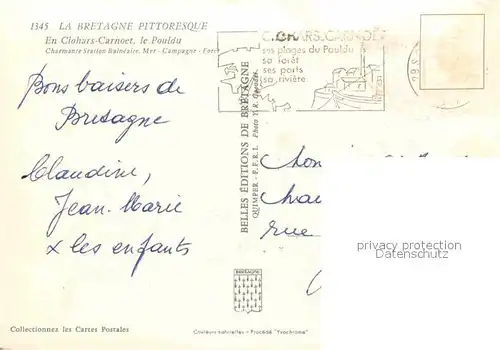 1345 LA BRETAGNE PITTORESQUE
En Clohars-Carnoet, le Pouldu
Charmante Station Balnéaire, Mer - Campagne - Foret
CLOHARS-CARNOËT
ses plages du Pouldu
sa forêt
ses ports
sa rivière
Bons baisers de
Bretagne
Claudine,
Jean-Marie
x les enfants
BELLES ÉDITIONS DE BRETAGNE
QUIMPER - P.F.R.I. Photo
rue
privacy protection
Datenschutz
BRETAGNE
Collectionnez les Cartes Postales
Couleurs naturelles - Procédé "Yvochrome"